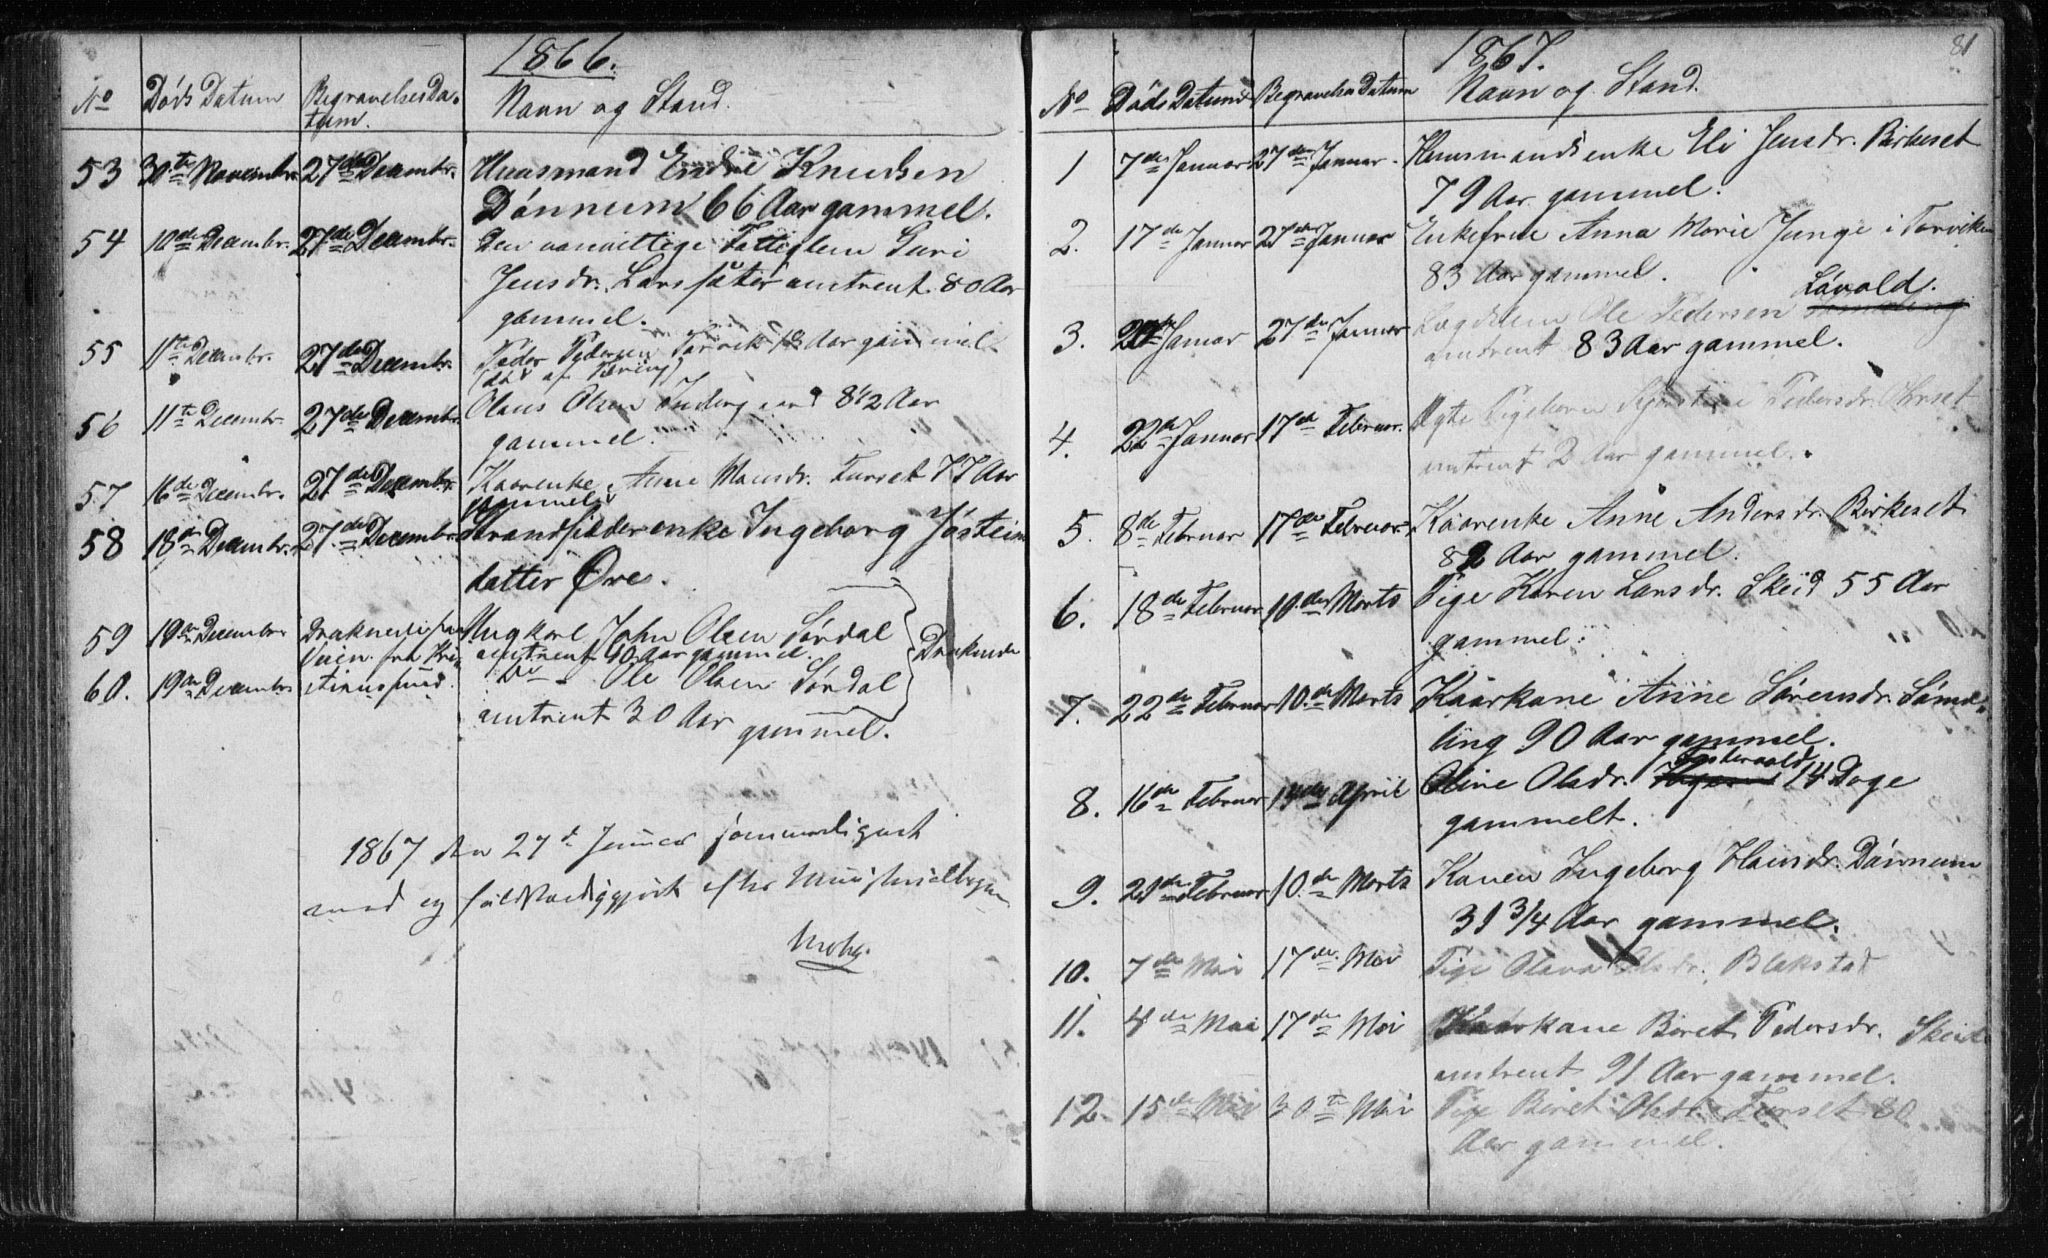 1866.
No Døds Datum Begravelses Da-
tum. Navn og Stand.
53 30te Novembr. 27de Decembr. Huusmand Endre Knudsen
Dønnum 66 Aar gammel.
54 10de Decembr. 27de Decembr. Den vanvittige Fattiglem Guri
Jensdr. Larssäter omtrent 80 Aar
gammel.
55 11te Decembr. 27de Decembr. Peder Pedersen Torvik 18 Aar gammel
(død af Tæring)
56 11te Decembr. 27de Decembr. Olaus Olsen 8 1/2 Aar
gammel.
57 16de Decembr. 27de Decembr. Kaarenke Anne Monsdr. Furset 77 Aar
gammel
58 18de Decembr. 27de Decembr. Strandsidderenke Ingeborg Jøstein
datter Øre.
59 19de Decembr Druknede paa Ungkarl John Olsen Sørdal
Veien fra Kri- omtrent 40 Aar gammel.
60. 19de Decembr stianssund. Do - Ole Olsen Sørdal
omtrent 30 Aar
gammel.
Druknede
1867 den 27d Januar sammenlignet
med og fuldstændiggjort efter Ministerialbogen
81
1867.
No Døds Datum Begravelses Datum Navn og Stand.
1 7de Januar 27de Januar. Huusmandsenke Eli Jensdr. Birkeset
79 Aar gammel.
2. 17de Januar 27de Januar Enkefrue Anna Marie Junge i Torviken
83 Aar gammel.
Løvold.
3. Januar 27de Januar Lægdslem Ole Pedersen
omtrent 83 Aar gammel.
4. 22de Januar 17de Februar. Ægte Pigebarn Pedersdr.
omtrent 2 Aar gammel.
5. 8de Februar 17de Februar Kaarenke Anne Andersdr. Birkeset
82 Aar gammel.
6. 18de Februar 10de Marts Pige Karen Larsdr. Skeid 55 Aar
gammel.
7. 22de Februar 10.de Marts Kaarkone Anne Sørensdr. Sømd-
ling 90 Aar gammel.
8. 16de Februar 14de April Oline Olsdr. 14 Dage
gammelt.
9. 21de Februar 10.de Marts Karen Ingeborg Hansdr. Dønnum
31 3/4 Aar gammel.
10. 7de Mai 17de Mai Pige Olava Olsdr. Blakstad
11. 4de Mai 17de Mai Kaarkone Beret Pedersdr. Skeide
omtrent 91 Aar gammel.
12. 15de Mai 30te Mai Pige Beret Olsdr. Furset 80
Aar gammel.